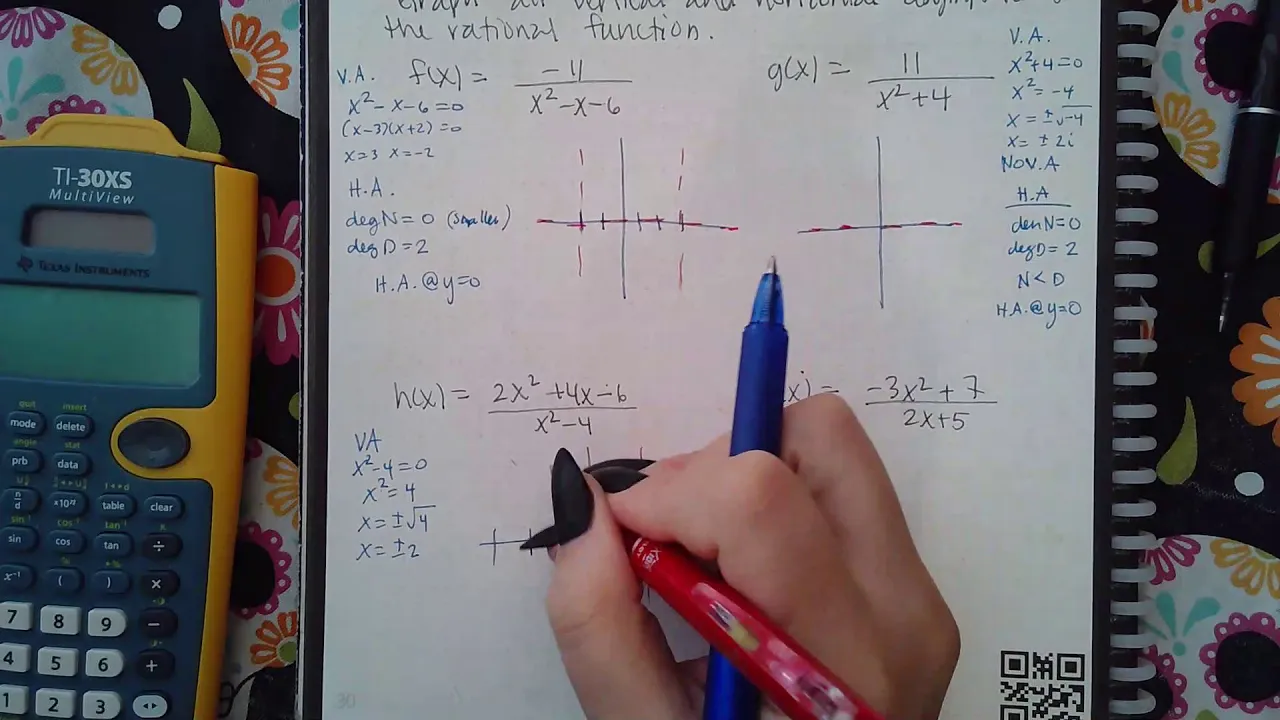 the rational function.
V.A.
f(x) = -11 / x² - x - 6
x² - x - 6 = 0
(x-3)(x+2) = 0
x = 3 x = -2
H.A.
deg N = 0 (smaller)
deg D = 2
H.A. @ y = 0
g(x) = 11 / x² + 4
V.A.
x² + 4 = 0
x² = -4
x = ±√-4
x = ± 2i
NO V.A
H.A
den N = 0
deg D = 2
N < D
H.A. @ y = 0
h(x) = 2x² + 4x - 6 / x² - 4
VA
x² - 4 = 0
x² = 4
x = ±√4
x = ± 2
(x) = -3x² + 7 / 2x + 5
30
TI-30XS
MultiView
TEXAS INSTRUMENTS
quit insert
mode delete
angle stat
prb data
n/d ×10ⁿ table clear
sin⁻¹ cos⁻¹ tan⁻¹
sin cos tan ÷
x⁻¹ ( ) ×
7 8 9 −
4 5 6 +
1 2 3